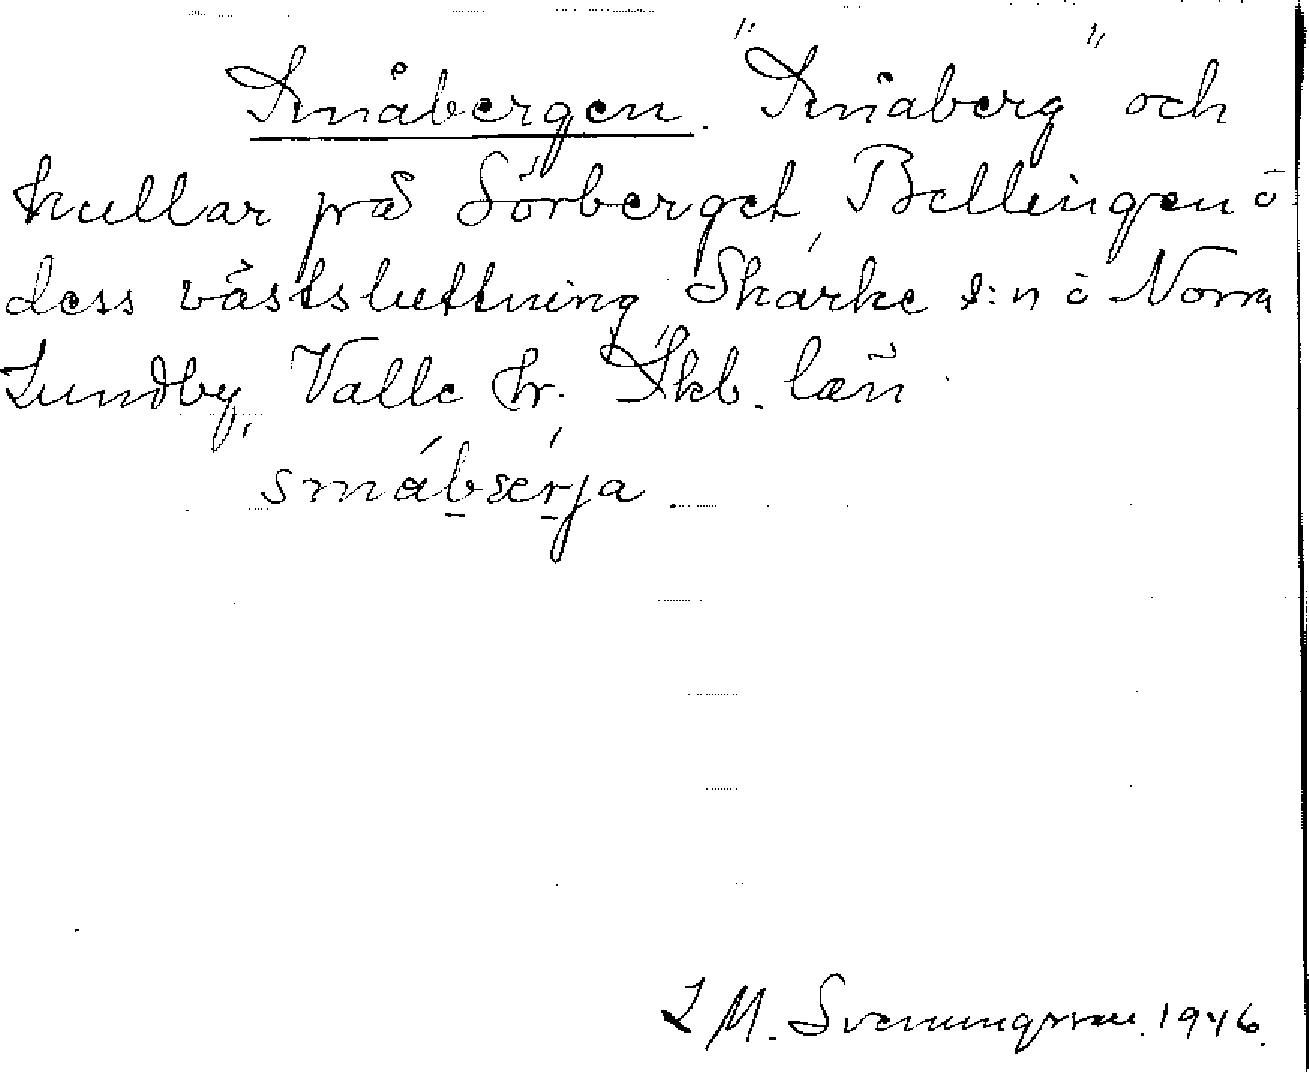 Småbergen. "Småberg" och
kullar på Sörberget Billingen i
dess västsluttning Skärke s:n i Norra
Lundby, Valle hr. Skb. län
småbær̠ja
L M. Svenungsson. 1946.